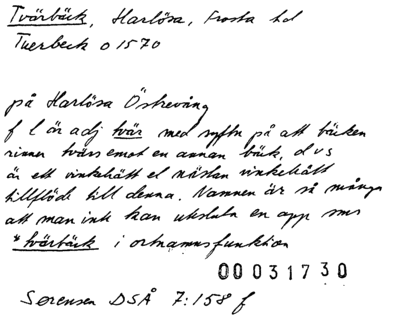 Tvärbäck, Harlösa, Frosta hd
Tuerbeck o 1570
på Harlösa Östrevång
f l är adj tvär med syftn på att bäcken
rinner tvärs emot en annan bäck, d v s
är ett vinkelrätt el nästan vinkelrätt
tillflöde till denna. Namnen är så många
att man ink kan utesluta en app sms
*tvärbäck i ortnamnsfunktion
00031730
Sørensen DSÅ 7:158 f